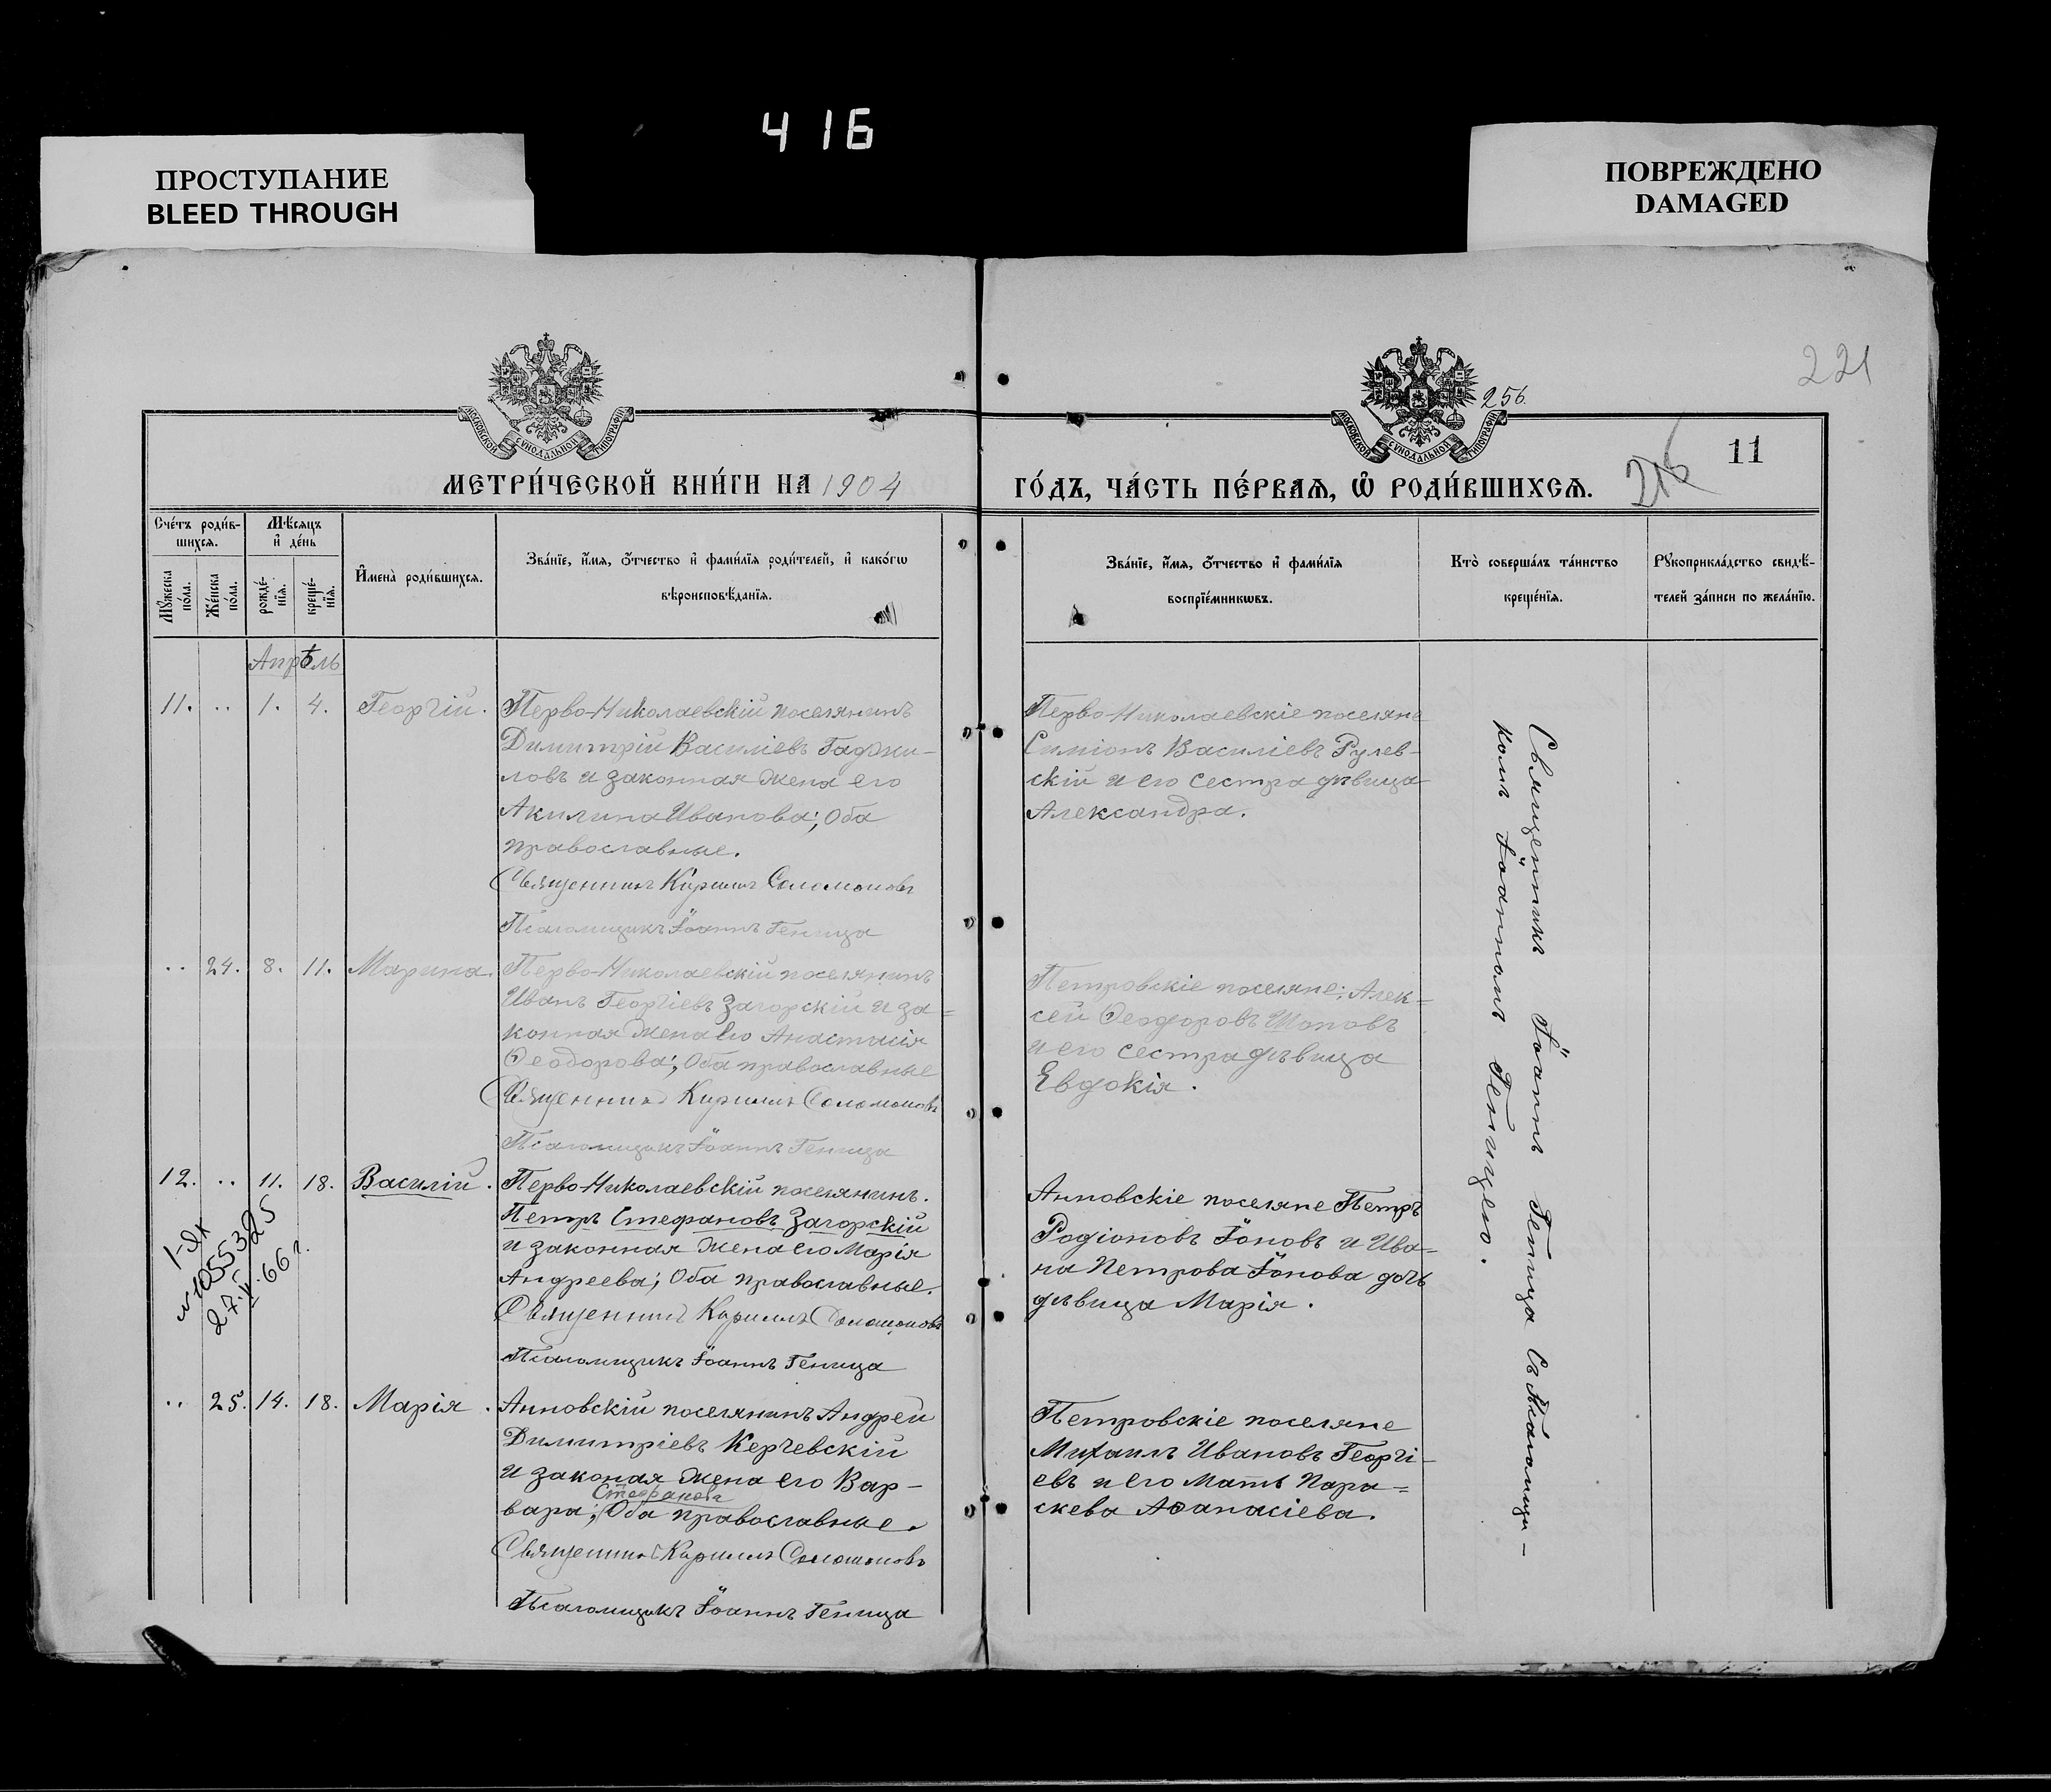 416
ПРОСТУПАНИЕ
BLEED THROUGH
ПОВРЕЖДЕНО
DAMAGED
221
256.
МОСКОВСКОЙ СѴНОДАЛЬНОЙ ТИПОГРАФІИ
МОСКОВСКОЙ СѴНОДАЛЬНОЙ ТИПОГРАФІИ
11
216
МЕТРИ́ЧЕСКОЙ КНИ́ГИ НА 1904
ГО́ДЪ, ЧА́СТЬ ПЕ́РВАЯ, Ѿ РОДИ́ВШИХСЯ.
Сче́тъ роди́в-
шихся.
Мѣ́сяцъ
и́ де́нь
Мꙋ́жеска
по́ла.
Же́нска
по́ла.
рожде́-
нїя.
креще́-
нїя.
И҆мена̀ роди́вшихся.
Зва́нїе, и҆́мя, ѻ҆́тчество и҆ фами́лїя роди́телей, и҆ како́гѡ
вѣроисповѣ́данїя.
Зва́нїе, и҆́мя, ѻ҆́тчество и҆ фами́лїя
воспрїе́мникѡвъ.
Кто̀ соверша́лъ та́инство
креще́нїя.
Рꙋкоприкла́дство свидѣ́-
телей за́писи по жела́нїю.
Апрѣль
11. .. 1. 4. Георгій.
Перво-Николаевскій поселянинъ
Димитрій Василіевъ Гаджи-
ловъ и законная жена его
Акилина Иванова; Оба
православные.
Священникъ Кириллъ Соломоновъ
Псаломщикъ Іоаннъ Геница
Перво-Николаевскіе поселяне
Симіонъ Василіевъ Рулев-
скій и его сестра дѣвица
Александра.
.. 24. 8. 11. Марина.
Перво-Николаевскій поселянинъ
Иванъ Георгіевъ Загорскій и за=
конная жена его Анастасія
Ѳеодорова; Оба православные
Священникъ Кириллъ Соломоновъ
Псаломщикъ Іоаннъ Геница
Петровскіе поселяне: Алек=
сей Ѳеодоровъ Шоповъ
и его сестра дѣвица
Евдокія.
12. .. 11. 18. Василій.
1-Як
№ 1055325
27.V.66 г.
Перво-Николаевскій поселянинъ.
Петръ Стефановъ Загорскій
и законная жена его Марія
Андреева; Оба православные.
Священникъ Кириллъ Соломоновъ
Псаломщикъ Іоаннъ Геница
Анновскіе поселяне Петръ
Родіоновъ Іоновъ и Ива=
на Петрова Іонова дочь
дѣвица Марія.
.. 25. 14. 18. Марія.
Анновскій поселянинъ Андрей
Димитріевъ Керчевскій
и законая жена его Вар-
Стефанова
вара; Оба православные.
Священникъ Кириллъ Соломоновъ
Псаломщикъ Іоаннъ Геница
Петровскіе поселяне
Михаилъ Ивановъ Георгі-
евъ и его мать Пара=
скева Аѳанасіева.
Священникъ Іоаннъ Геница съ Псаломщи-
комъ Іоанномъ Геницею.